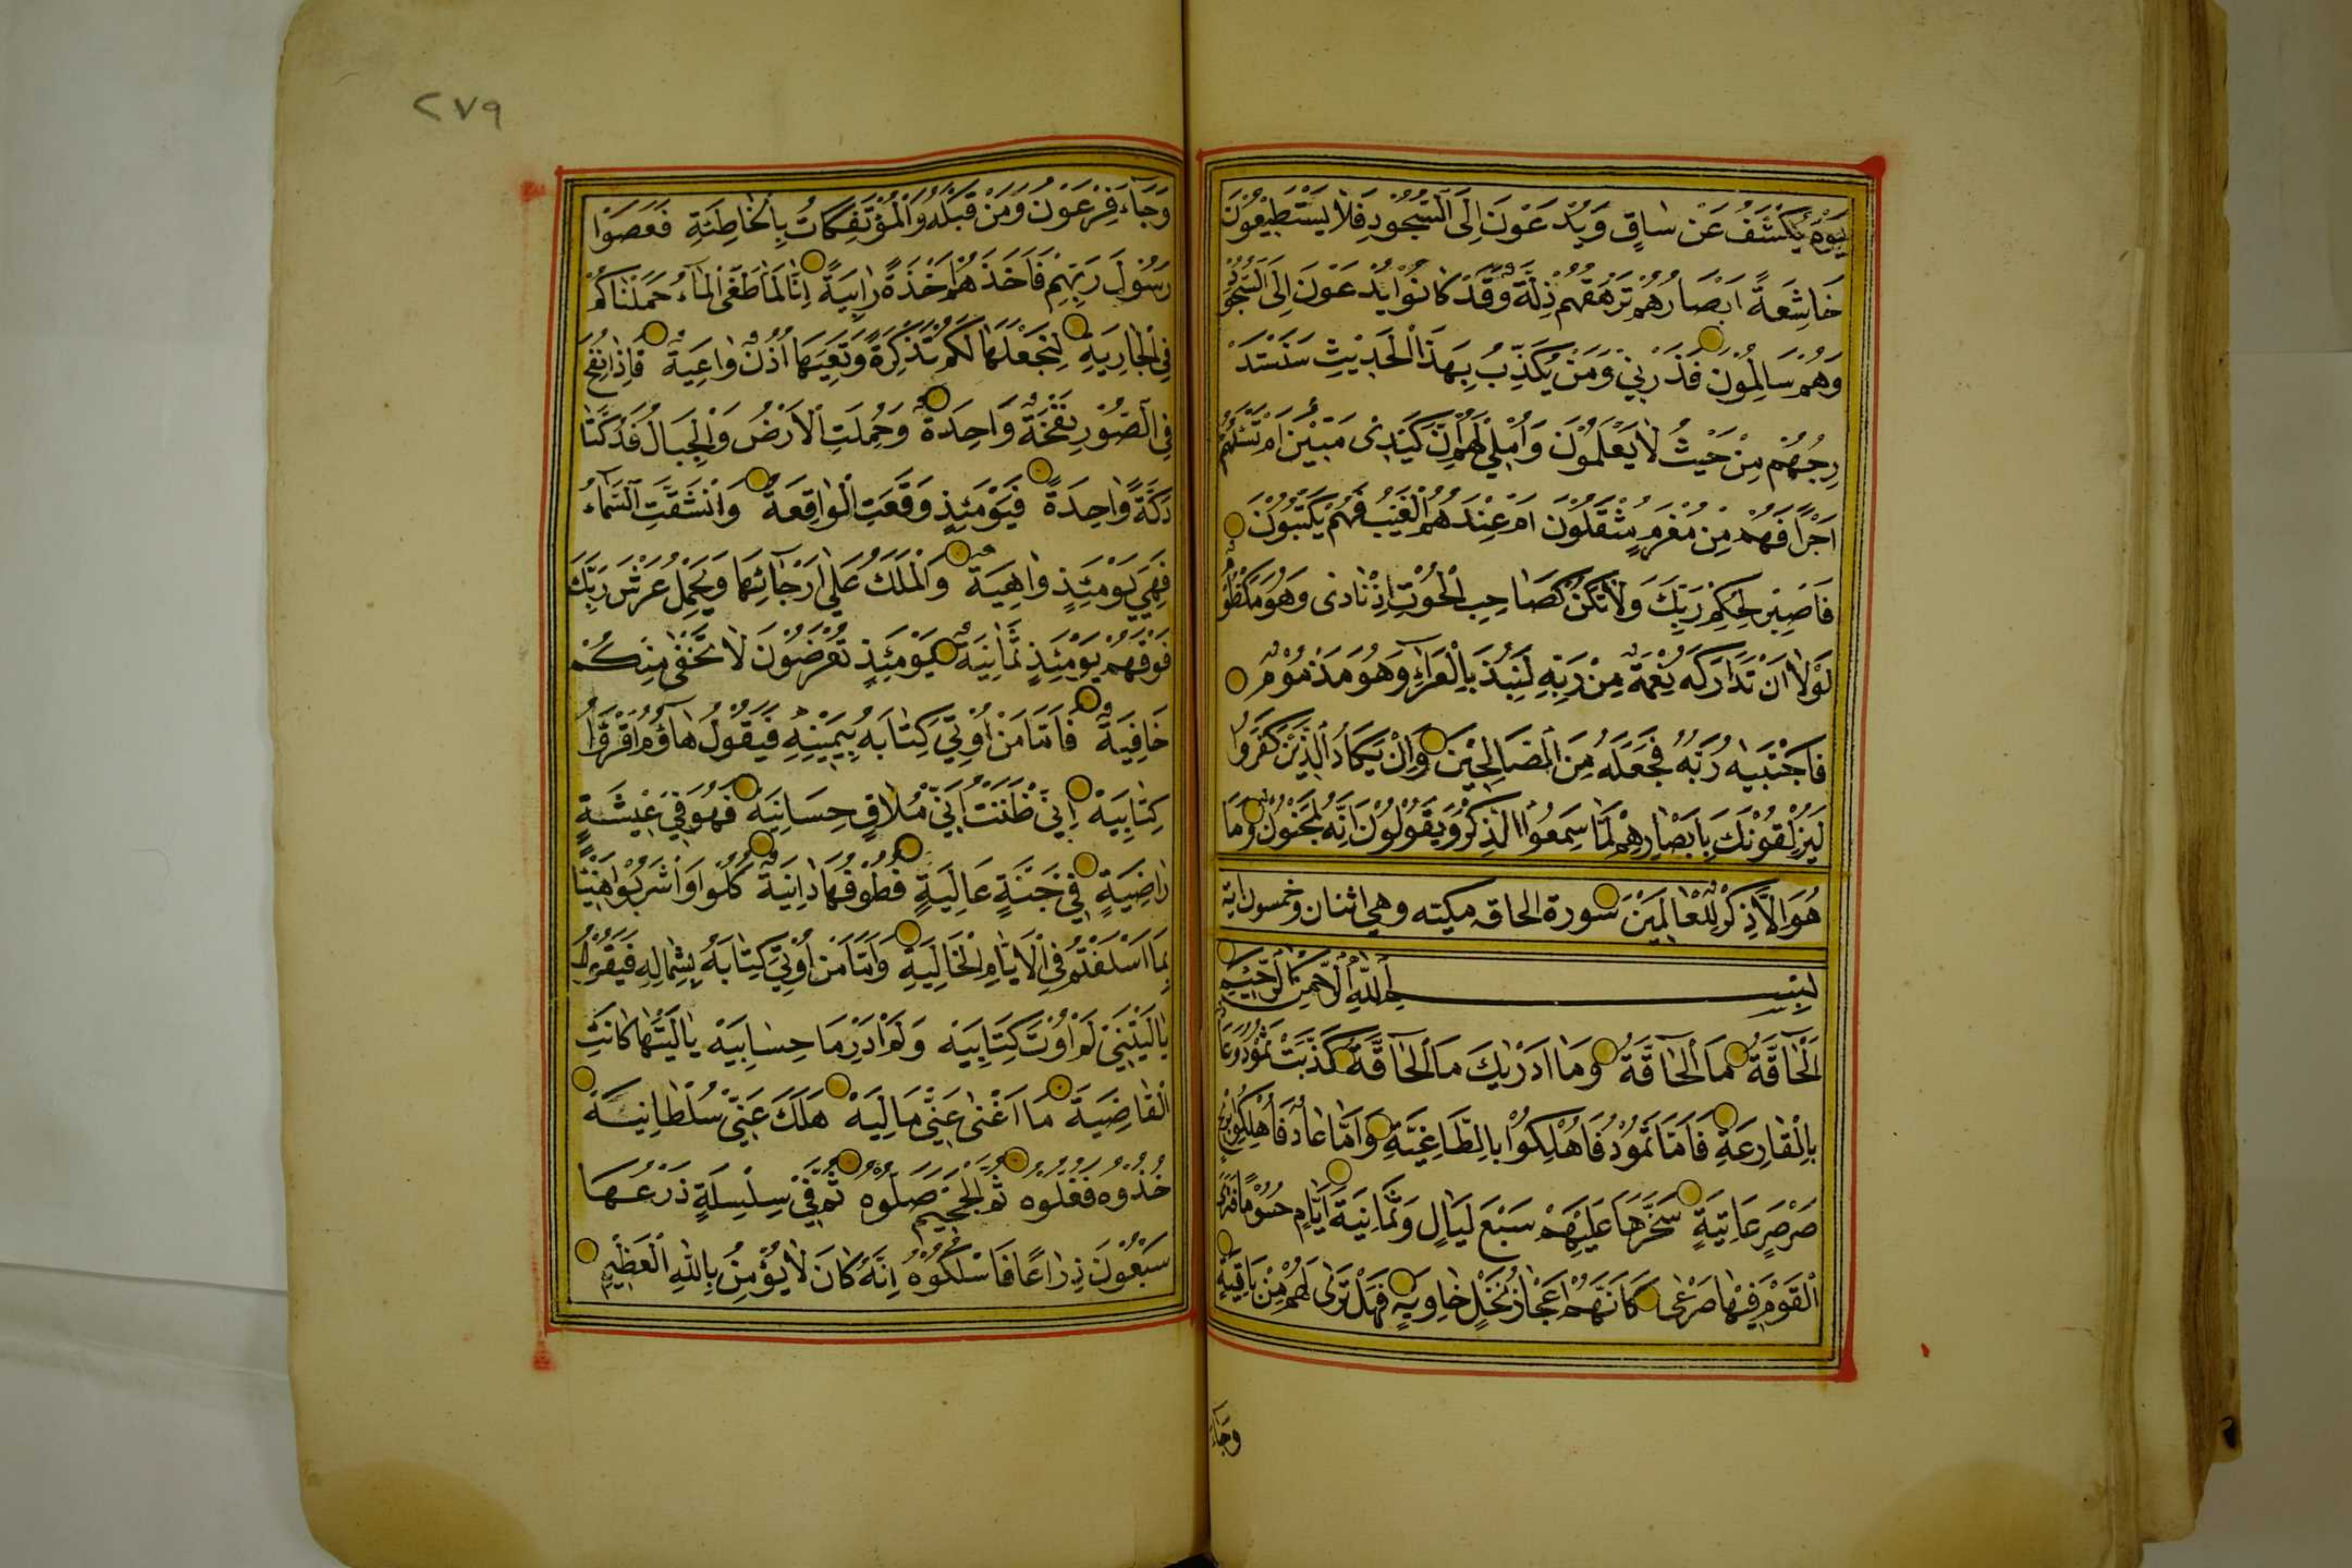 يَوْمَ يُكْشَفُ عَنْ سَاقٍ وَيُدْعَوْنَ اِلَى السُّجُودِ فَلَا يَسْتَطِيعُونَ
خَاشِعَةً اَبْصَارُهُمْ تَرْهَقُهُمْ ذِلَّةٌ وَقَدْ كَانُوا يُدْعَوْنَ اِلَى السُّجُودِ
وَهُمْ سَالِمُونَ فَذَرْنِي وَمَنْ يُكَذِّبُ بِهَذَا الْحَدِيثِ سَنَسْتَدْ
رِجُهُمْ مِنْ حَيْثُ لَا يَعْلَمُونَ وَاُمْلِي لَهُمْ اِنَّ كَيْدِى مَتِينٌ اَمْ تَسْئَلُهُمْ
اَجْرًا فَهُمْ مِنْ مَغْرَمٍ مُثْقَلُونَ اَمْ عِنْدَهُمُ الْغَيْبُ فَهُمْ يَكْتُبُونَ
فَاصْبِرْ لِحُكْمِ رَبِّكَ وَلَا تَكُنْ كَصَاحِبِ الْحُوتِ اِذْ نَادٰى وَهُوَ مَكْظُومٌ
لَوْلَا اَنْ تَدَارَكَهُ نِعْمَةٌ مِنْ رَبِّهِ لَنُبِذَ بِالْعَرَاءِ وَهُوَ مَذْمُومٌ
فَاجْتَبٰيهُ رَبُّهُ فَجَعَلَهُ مِنَ الصَّالِحِينَ وَاِنْ يَكَادُ الَّذِينَ كَفَرُوا
لَيُزْلِقُونَكَ بِاَبْصَارِهِمْ لَمَّا سَمِعُوا الذِّكْرَ وَيَقُولُونَ اِنَّهُ لَمَجْنُونٌ وَمَا
هُوَ اِلَّا ذِكْرٌ لِلْعَالَمِينَ سورة الحاقه مكيته وهي اثنان وخمسون اية
بِسْمِ اللّٰهِ الرَّحْمٰنِ الرَّحِيمِ
اَلْحَآقَّةُ مَا الْحَآقَّةُ وَمَا اَدْرٰيكَ مَا الْحَآقَّةُ كَذَّبَتْ ثَمُودُ وَعَادٌ
بِالْقَارِعَةِ فَاَمَّا ثَمُودُ فَاُهْلِكُوا بِالطَّاغِيَةِ وَاَمَّا عَادٌ فَاُهْلِكُوا بِرِيحٍ
صَرْصَرٍ عَاتِيَةٍ سَخَّرَهَا عَلَيْهِمْ سَبْعَ لَيَالٍ وَثَمَانِيَةَ اَيَّامٍ حُسُومًا فَتَرَى
الْقَوْمَ فِيهَا صَرْعٰى كَاَنَّهُمْ اَعْجَازُ نَخْلٍ خَاوِيَةٍ فَهَلْ تَرٰى لَهُمْ مِنْ بَاقِيَةٍ
وجاء
٢٧٩
وَجَاءَ فِرْعَوْنُ وَمَنْ قَبْلَهُ وَالْمُؤْتَفِكَاتُ بِالْخَاطِئَةِ فَعَصَوْا
رَسُولَ رَبِّهِمْ فَاَخَذَهُمْ اَخْذَةً رَابِيَةً اِنَّا لَمَّا طَغَى الْمَاءُ حَمَلْنَاكُمْ
فِي الْجَارِيَةِ لِنَجْعَلَهَا لَكُمْ تَذْكِرَةً وَتَعِيَهَا اُذُنٌ وَاعِيَةٌ فَاِذَا نُفِخَ
فِي الصُّورِ نَفْخَةٌ وَاحِدَةٌ وَحُمِلَتِ الْاَرْضُ وَالْجِبَالُ فَدُكَّتَا
دَكَّةً وَاحِدَةً فَيَوْمَئِذٍ وَقَعَتِ الْوَاقِعَةُ وَانْشَقَّتِ السَّمَاءُ
فَهِيَ يَوْمَئِذٍ وَاهِيَةٌ وَالْمَلَكُ عَلَى اَرْجَائِهَا وَيَحْمِلُ عَرْشَ رَبِّكَ
فَوْقَهُمْ يَوْمَئِذٍ ثَمَانِيَةٌ يَوْمَئِذٍ تُعْرَضُونَ لَا تَخْفٰى مِنْكُمْ
خَافِيَةٌ فَاَمَّا مَنْ اُوتِيَ كِتَابَهُ بِيَمِينِهِ فَيَقُولُ هَاؤُمُ اقْرَؤُا
كِتَابِيَهْ اِنِّي ظَنَنْتُ اَنِّي مُلَاقٍ حِسَابِيَهْ فَهُوَ فِي عِيشَةٍ
رَاضِيَةٍ فِي جَنَّةٍ عَالِيَةٍ قُطُوفُهَا دَانِيَةٌ كُلُوا وَاشْرَبُوا هَنِيئًا
بِمَا اَسْلَفْتُمْ فِي الْاَيَّامِ الْخَالِيَةِ وَاَمَّا مَنْ اُوتِيَ كِتَابَهُ بِشِمَالِهِ فَيَقُولُ
يَا لَيْتَنِي لَمْ اُوتَ كِتَابِيَهْ وَلَمْ اَدْرِ مَا حِسَابِيَهْ يَا لَيْتَهَا كَانَتِ
الْقَاضِيَةَ مَا اَغْنٰى عَنِّي مَالِيَهْ هَلَكَ عَنِّي سُلْطَانِيَهْ
خُذُوهُ فَغُلُّوهُ ثُمَّ الْجَحِيمَ صَلُّوهُ ثُمَّ فِي سِلْسِلَةٍ ذَرْعُهَا
سَبْعُونَ ذِرَاعًا فَاسْلُكُوهُ اِنَّهُ كَانَ لَا يُؤْمِنُ بِاللّٰهِ الْعَظِيمِ